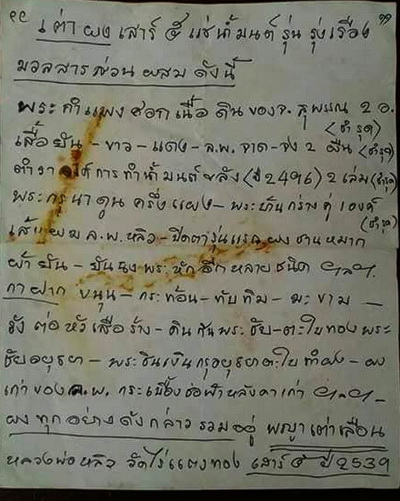 ๙๙
๑๑
เต่า ผง เสาร์ ๕ แช่น้ำมนต์ รุ่น รุ่งเรือง
มวลสารส่วนผสม ดังนี้
พระกำแพงศอก เนื้อดิน ของ จ. สุพรรณ 2 อ.
(ชำรุด)
เสื้อยันต์ - ขาว - แดง - ล.พ. จาด - จง 2 ผืน
(ชำรุด)
ตำรา การทำน้ำมนต์ (ปี 2496) 2 เล่ม
(ชำรุด)
พระกรุนาดูน ครึ่งแผง - พระหันกร่าง คู่ องค์
(ชำรุด)
ล.พ. หลิว - ปิดตารุ่นแรก ผง ชานหมาก
ผ้ายันต์ - พระหักอีกหลายชนิด ฯลฯ
กาฝาก ขนุน - กระท้อน - ทับทิม - มะขาม -
รัง ต่อ หัวเสือร้าง - ดิน พระ ชัย - ตะไบทอง พระ
ชัยอยุธยา - พระชินเงินกรุอยุธยา ตะไบ ทำผง - ผง
เก่าของ ล.พ. กระเบื้องช่อฟ้าหลังคาเก่า ฯลฯ -
ผงทุกอย่างดังกล่าวรวมอยู่ พญาเต่าเลือน
หลวงพ่อหลิว วัดไร่แตงทอง เสาร์ ๕ ปี 2539